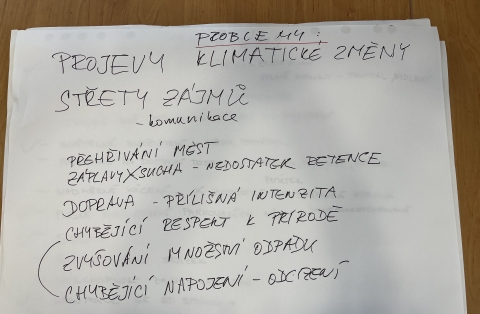 PROBLEMY:
PROJEVY KLIMATICKÉ ZMĚNY
STŘETY ZÁJMŮ
- komunikace
PŘEHŘÍVÁNÍ MĚST
ZÁPLAVY X SUCHA - NEDOSTATEK RETENCE
DOPRAVA - PŘÍLIŠNÁ INTENZITA
CHYBĚJÍCÍ RESPEKT K PŘÍRODĚ
ZVYŠOVÁNÍ MNOŽSTVÍ ODPADU
CHYBĚJÍCÍ NAPOJENÍ - ODCIZENÍ